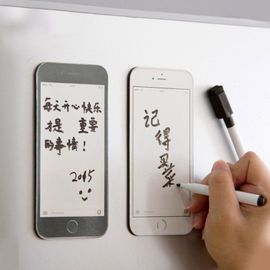 每天开心快乐
是 重要
的事情!
2015
记
得
买
菜